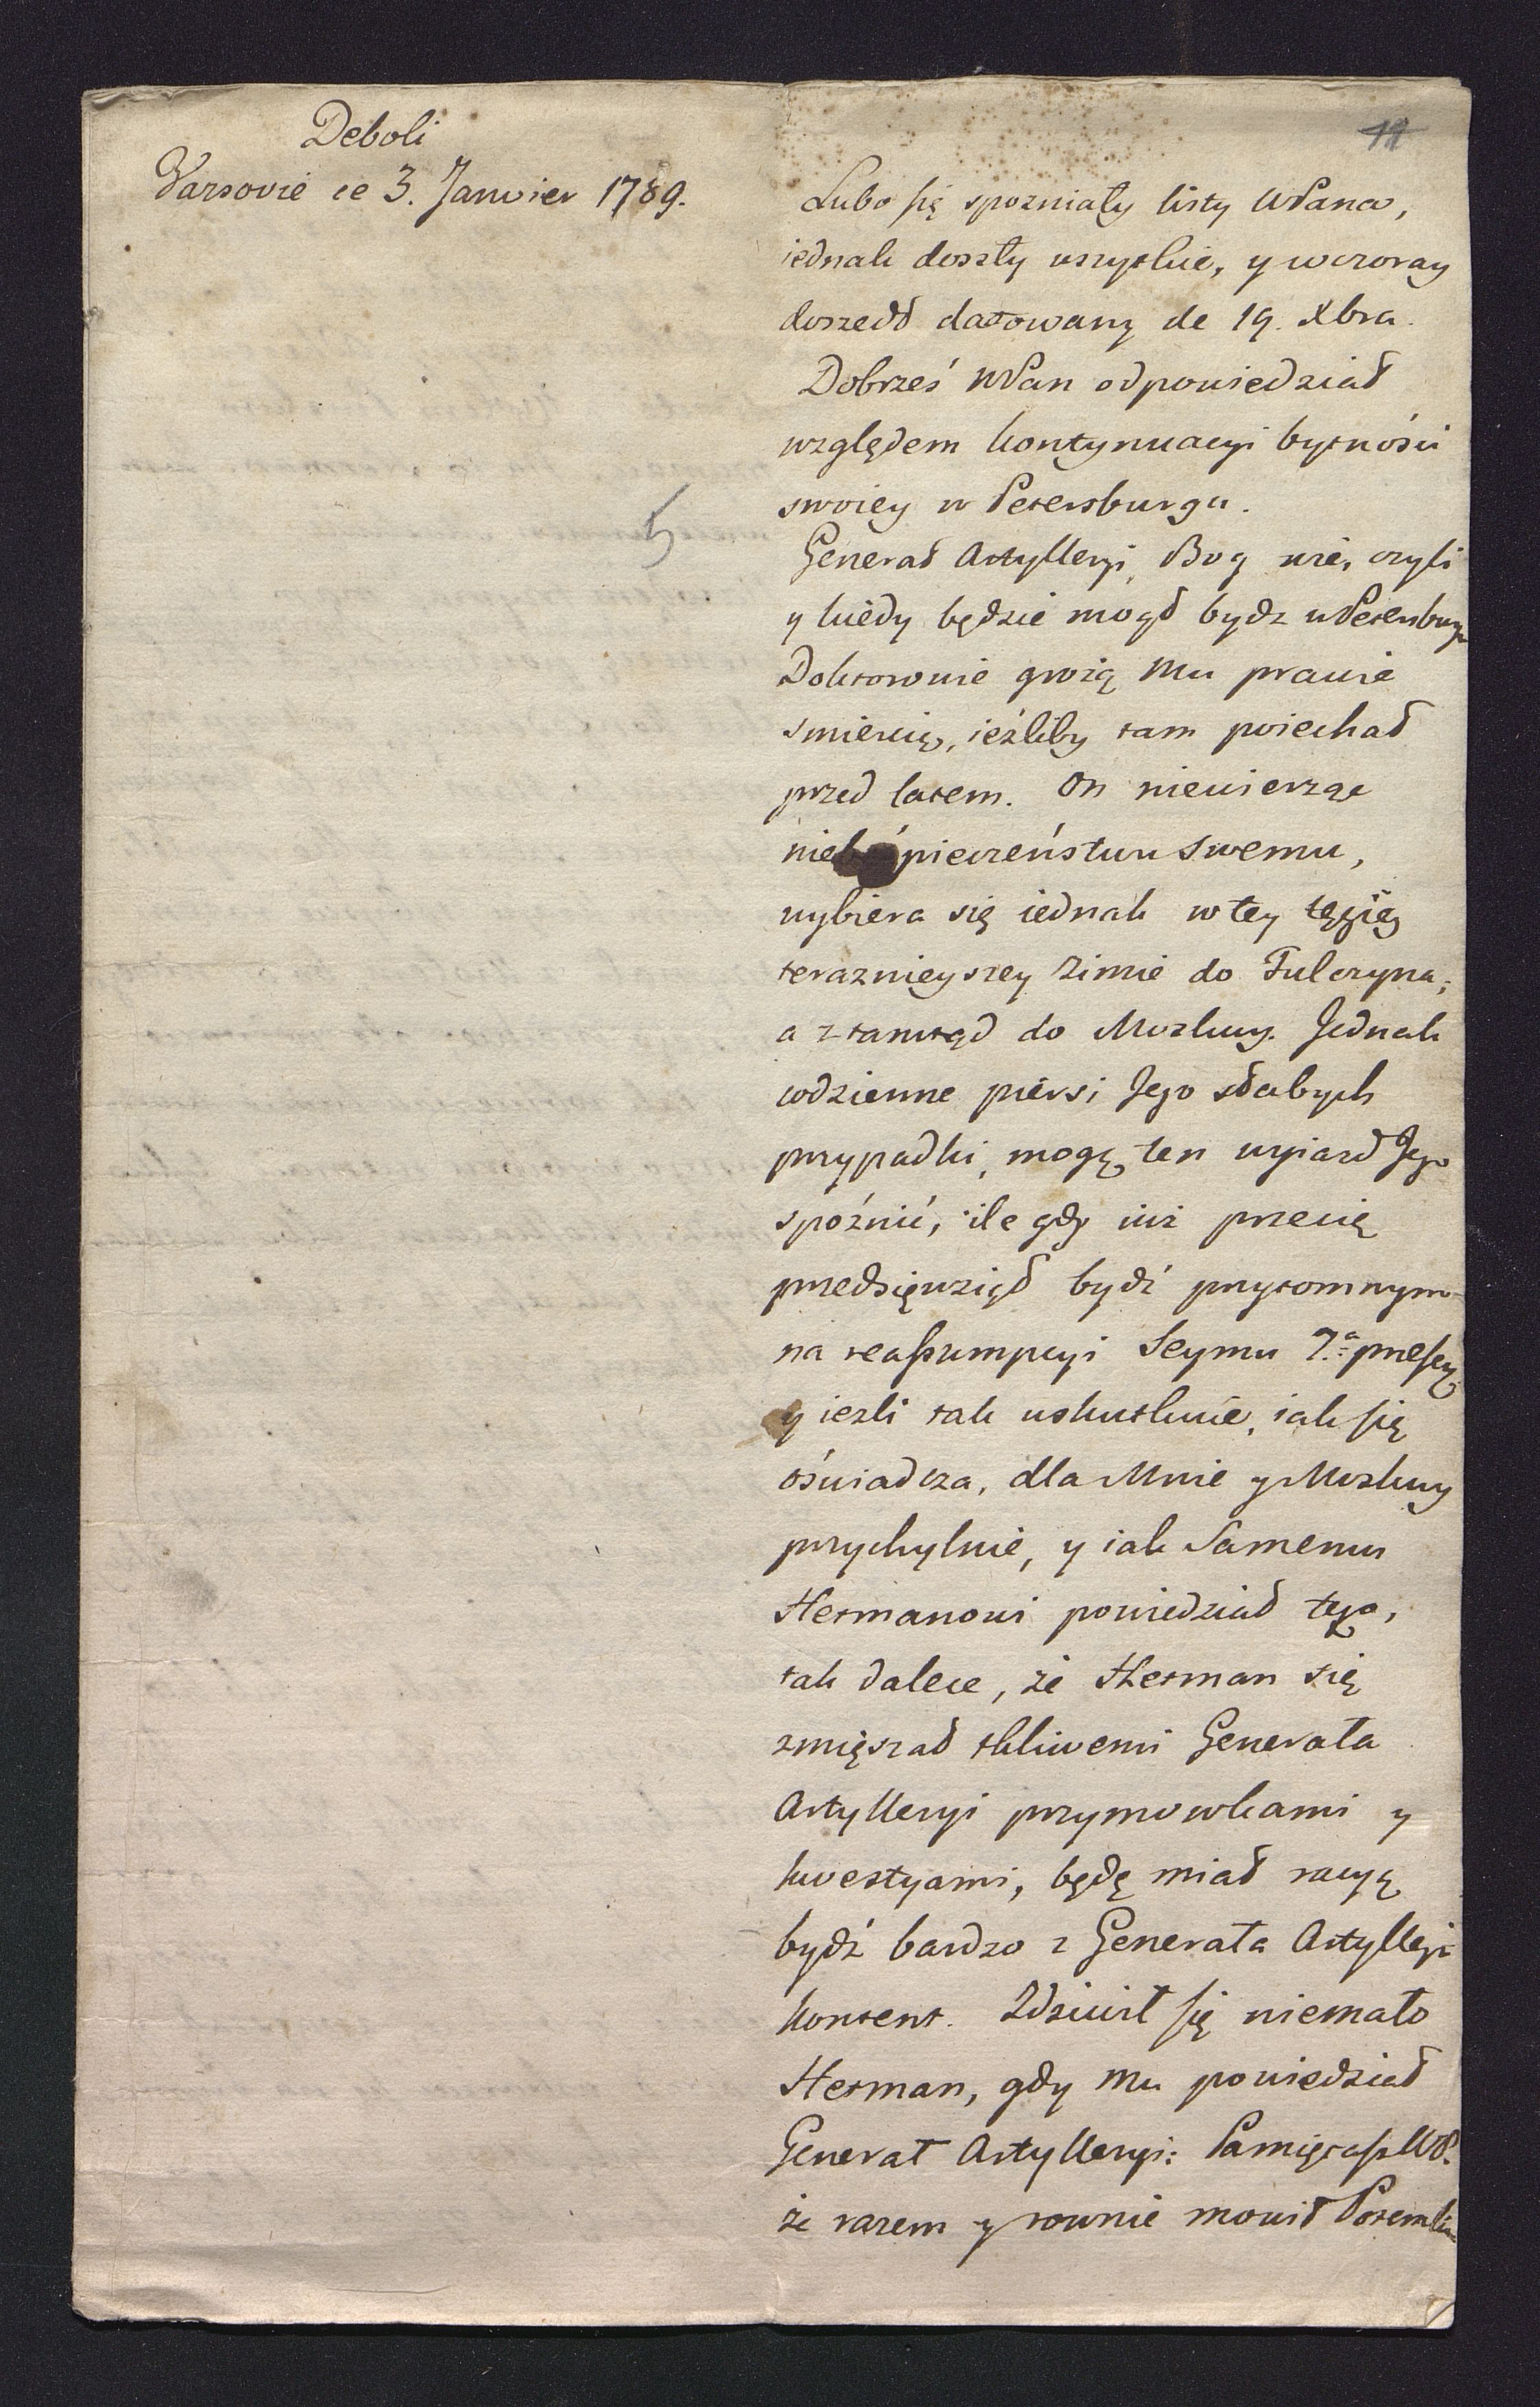 Deboli
Varsovie ce 3. Janvier 1789.
5
Lubo się spozniały listy WPana,
iednak doszły wszystkie, y wczoray
doszedł datowany de 19. Xbra.
Dobrześ WPan odpowiedział
względem kontynuacyi bytności
swoiey w Petersburgu.
Generał Artylleryi, Bog wie, czyli
y kiedy będzie mogł bydz w Petersburgu
Doktorowie grożą Mu prawie
smiercią, ieźliby tam poiechał
przed latem. On niewierząc
niebespieczeństwu swemu,
wybiera się iednak w tey tęgiey
teraznieyszey Zimie do Tulczyna,
a ztamtąd do Moskwy. Jednak
codzienne piersi Jego słabych
przypadki, mogą ten wyiazd Jego
spóźnić, ile gdy iuż przecię
przedsięwziął bydź przytomnym
na reassumpcyi Seymu 7.a praesen.
y iezli tak uskutkuie, iak się
oświadcza, dla Mnie y Moskwy
przychylnie, y iak Samemu
Hetmanowi powiedział tęgo,
tak dalece, że Hetman się
zmięszał tkliwemi Generała
Artylleryi przymowkami y
kwestyami, będę miał racyą
bydź bardzo z Generała Artylleryi
kontent. Zdziwił się niemało
Hetman, gdy Mu powiedział
Generał Artylleryi: Pamiętasz WP.
że razem y rownie mowił Potemkin